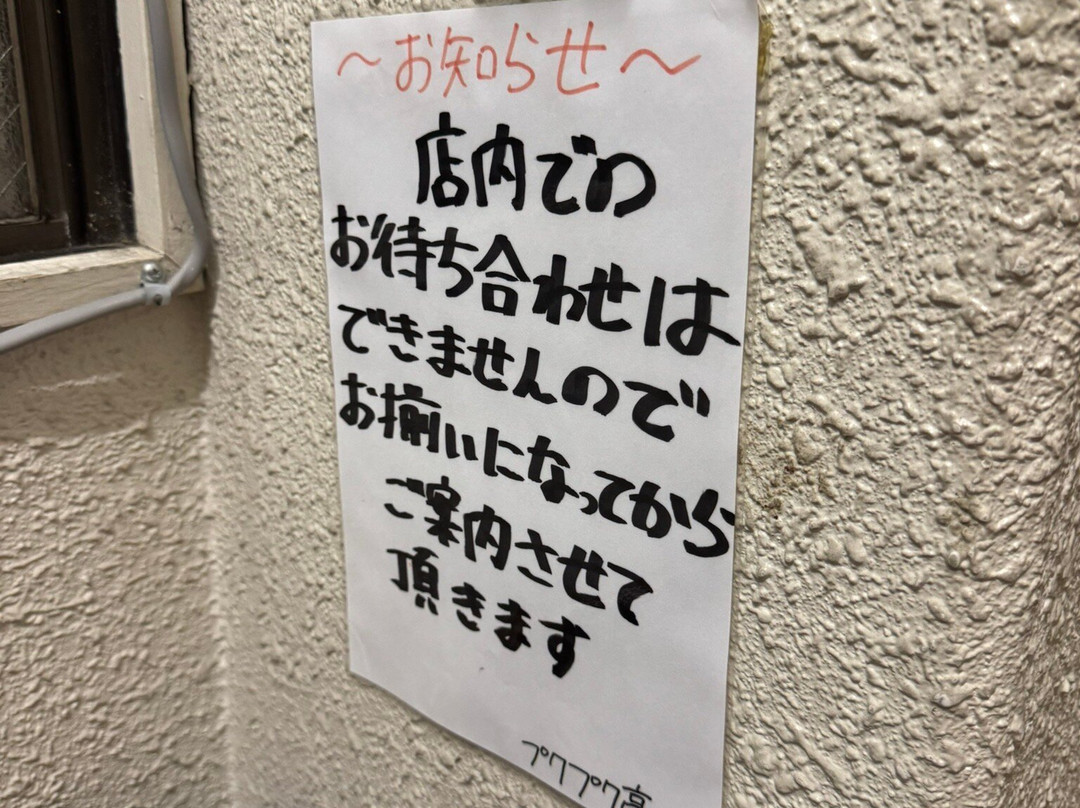 ～お知らせ～
店内での
お待ち合わせは
できませんので
お揃いになってから
ご案内させて
頂きます
プクプク高